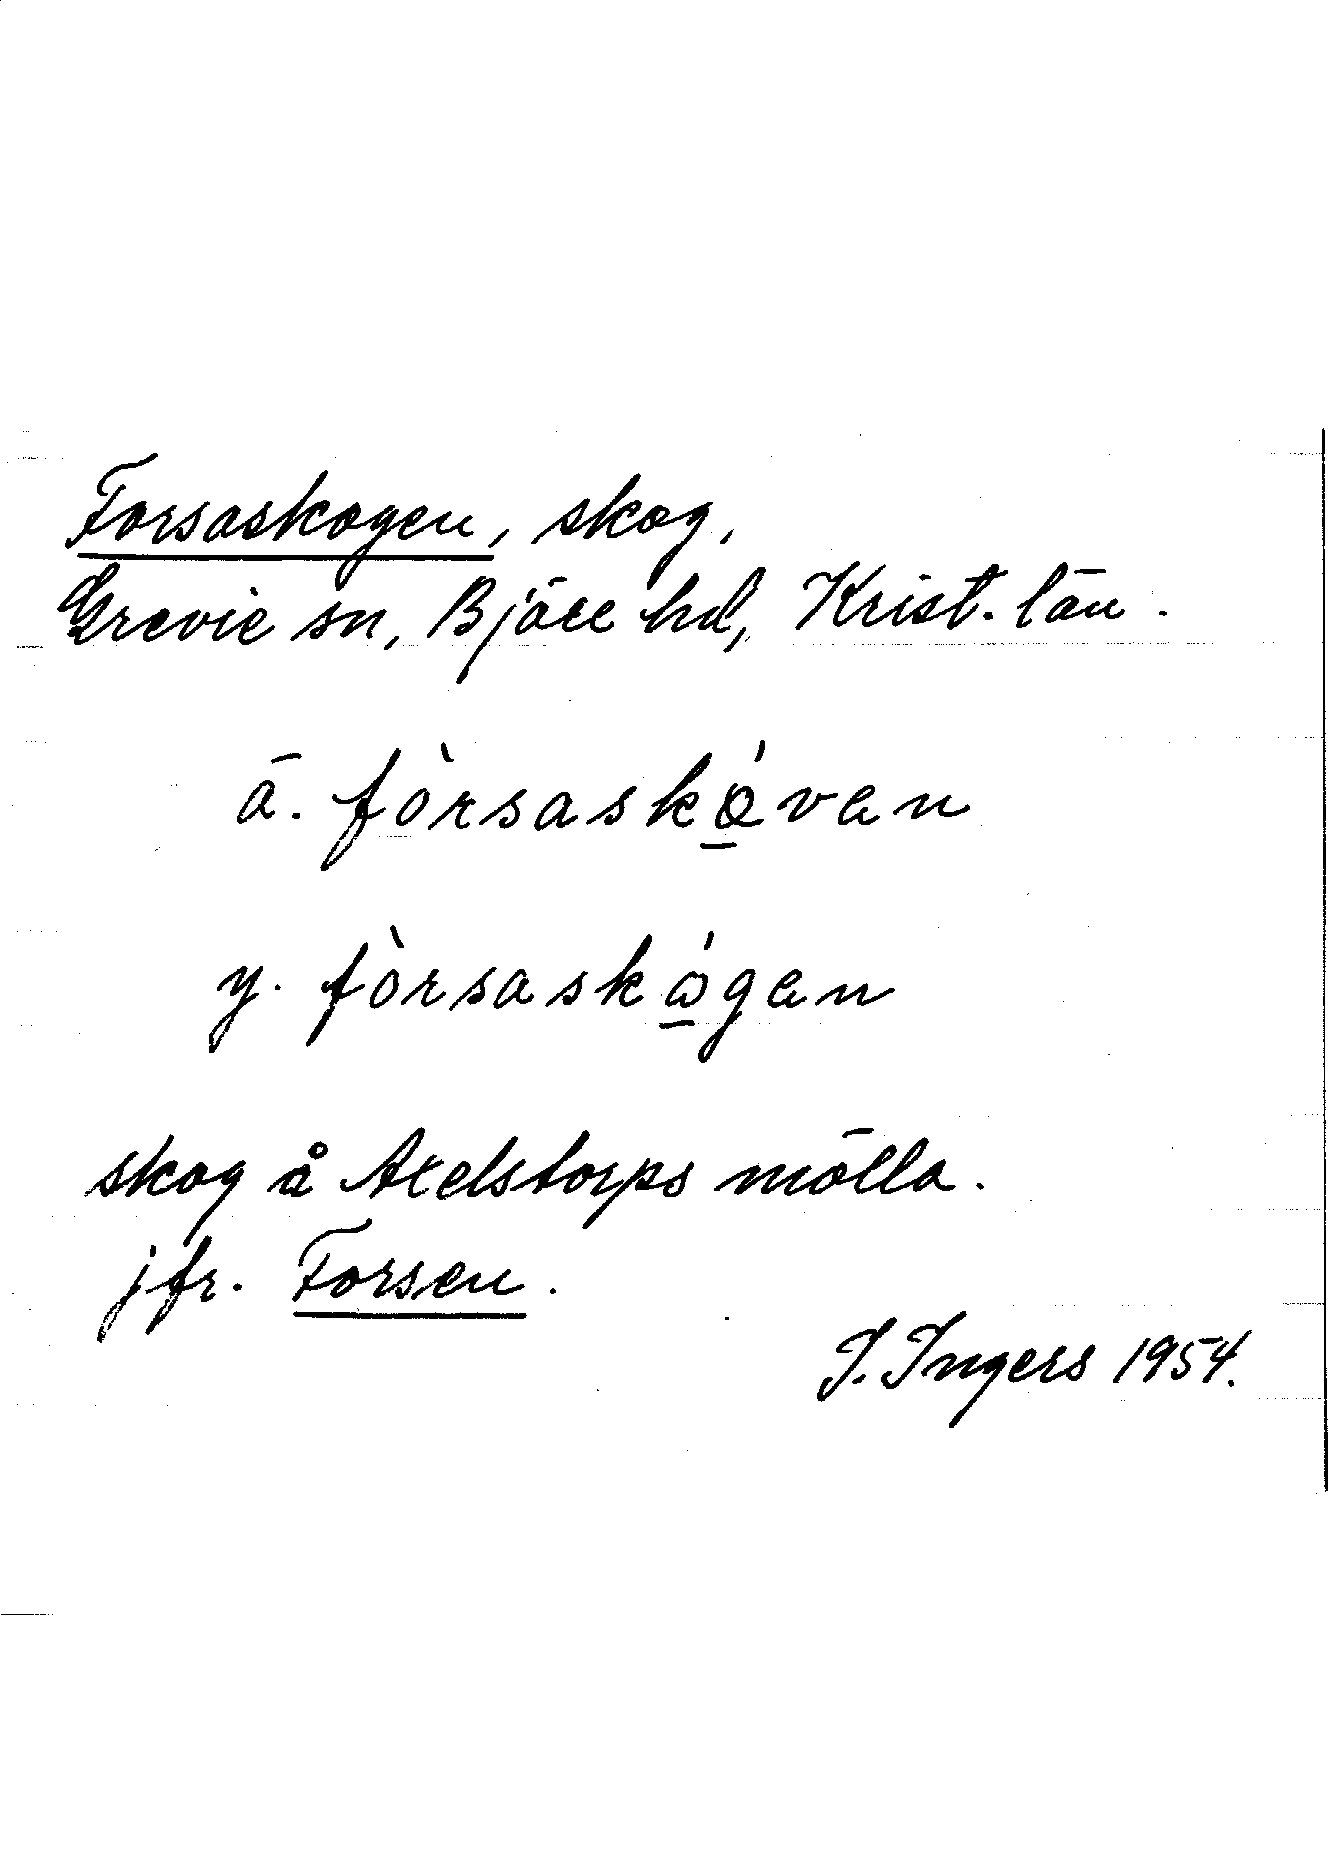 Forsaskogen, skog,
Grevie sn, Bjäre hd, Krist. län.
ä. fòrsaskǫ́van
y. fòrsaskó̱gan
skog å Axelstorps mölla.
jfr. Forsen.
I. Ingers 1954.